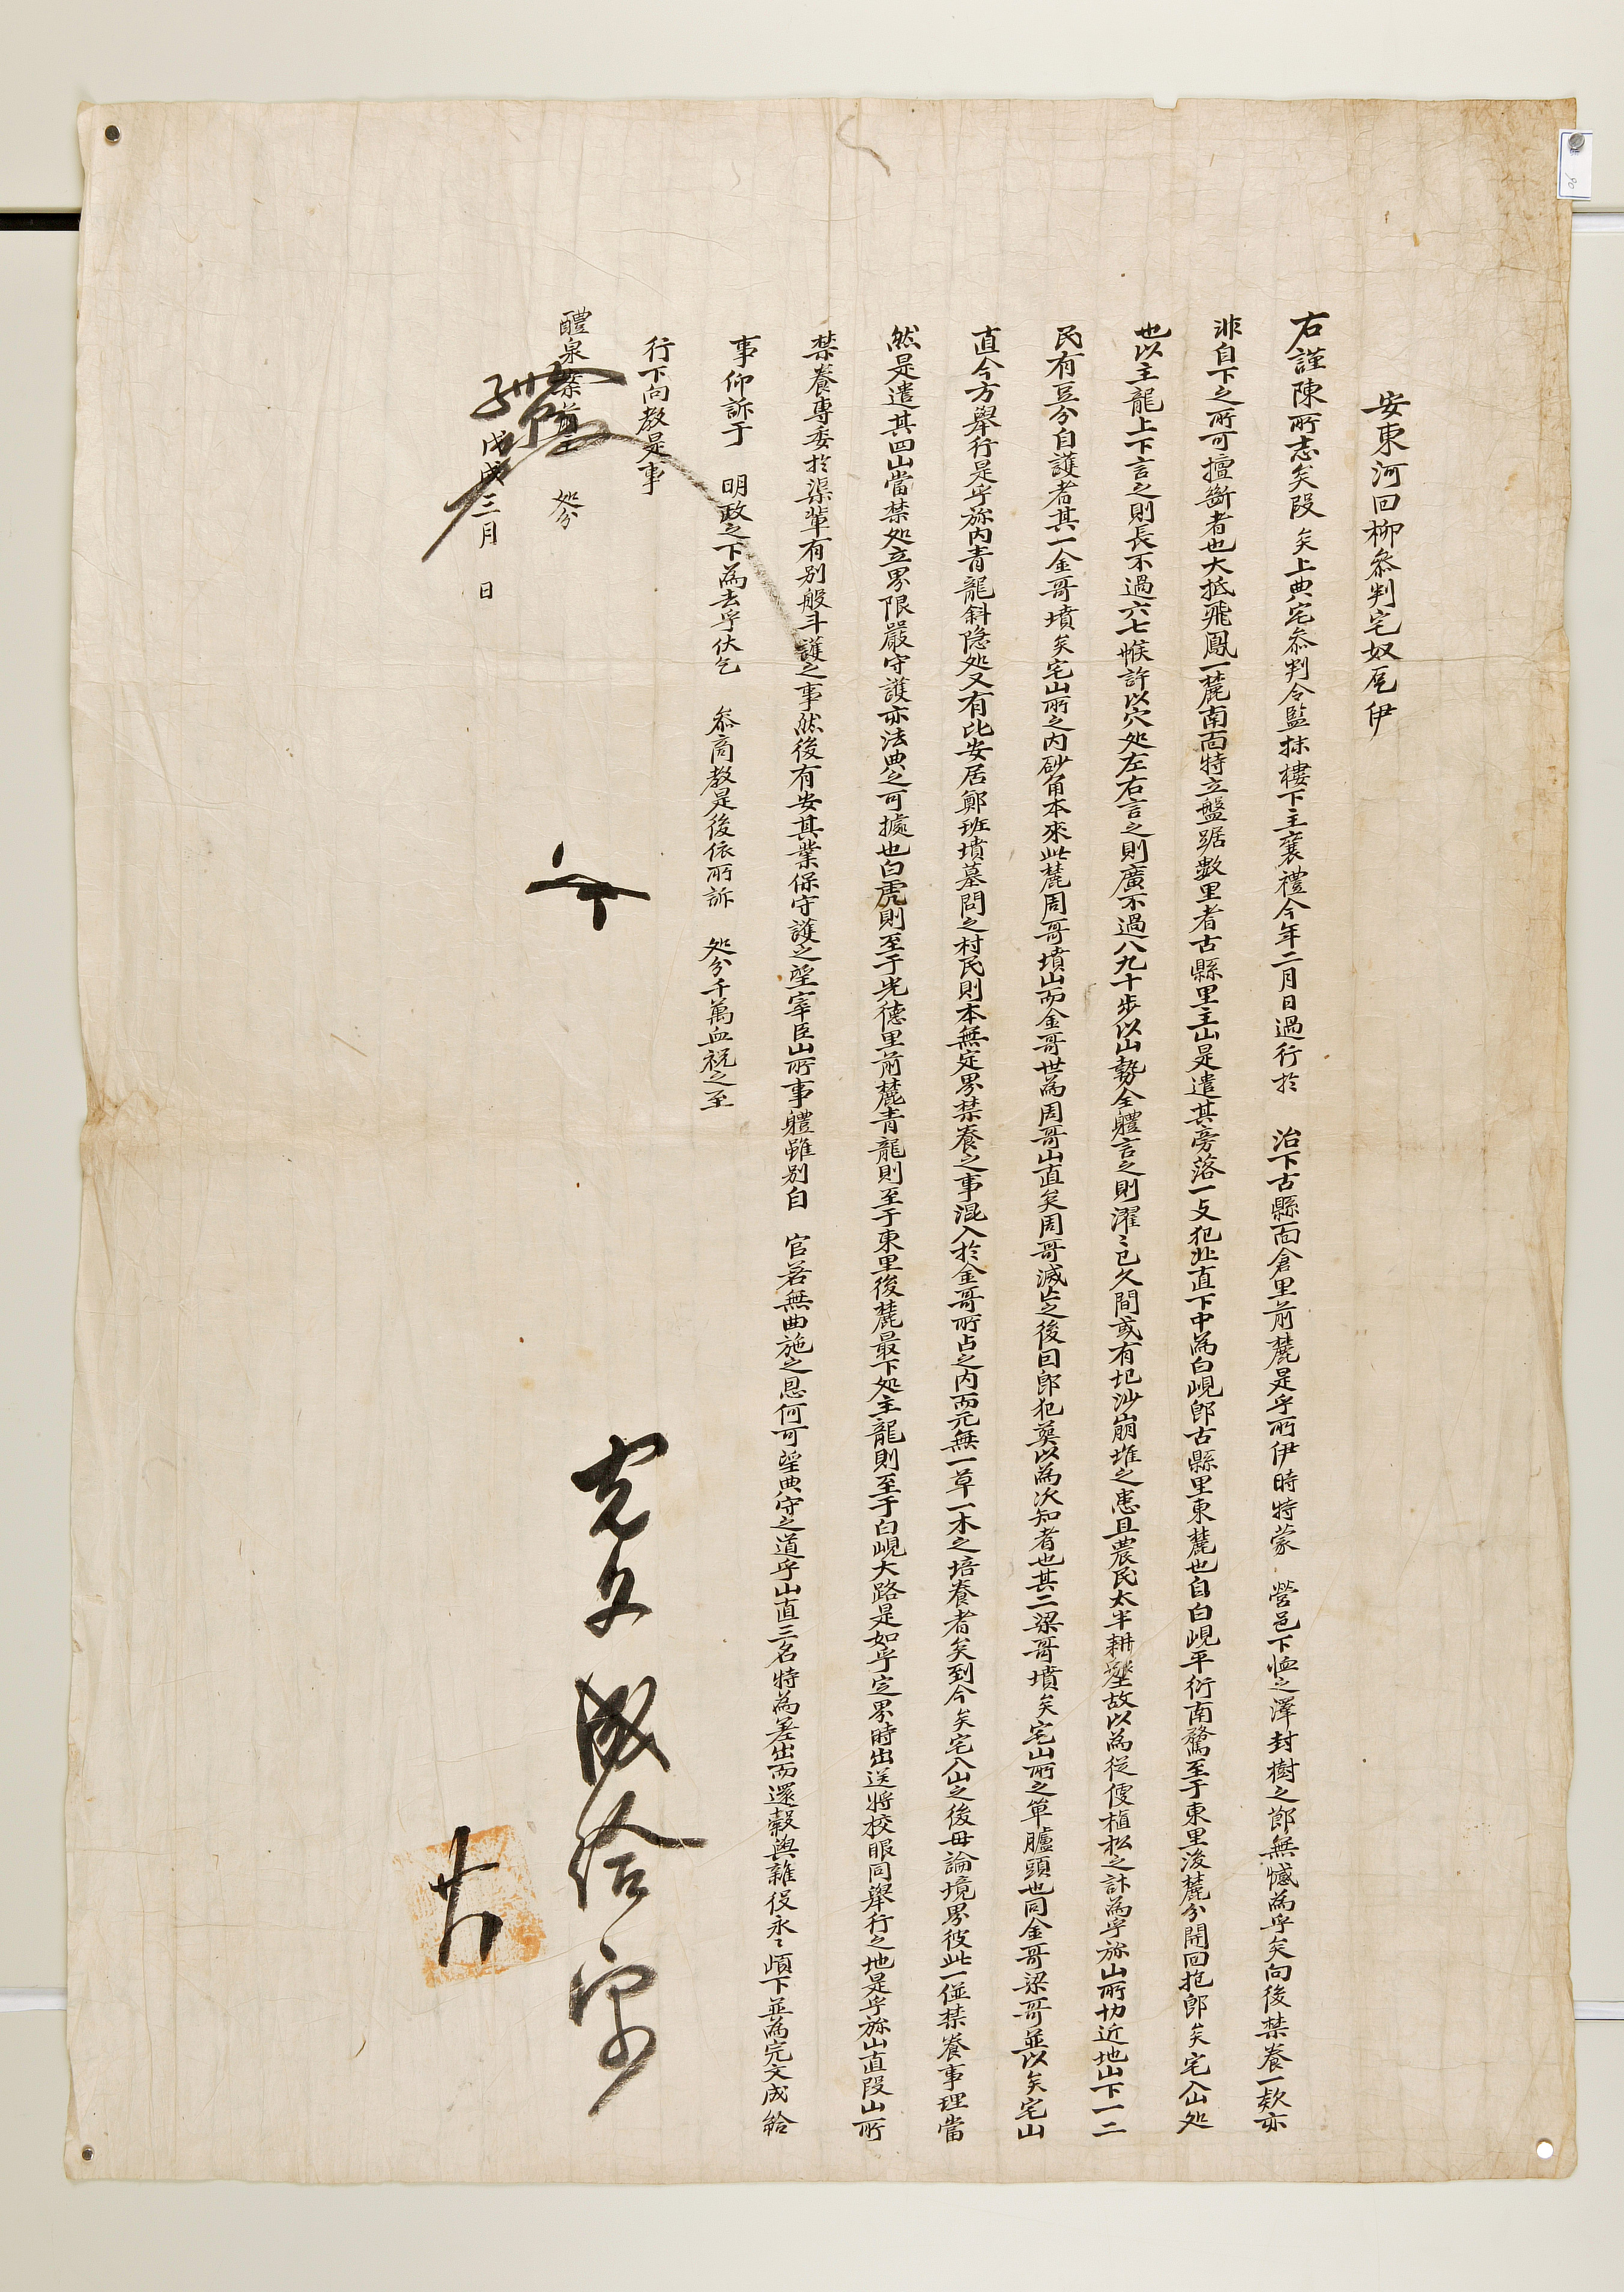 安東河回柳叅判宅奴𢀳伊
右謹陳所志矣段 矣上典宅叅判令監抹樓下主襄禮今年二月日過行於 治下古縣面倉里前麓是乎所伊時特蒙 營邑下恤之澤封樹之節無憾爲乎矣向後禁養一款亦
非自下之所可擅斷者也大抵飛鳳一麓南面特立盤踞數里者古縣里主山是遣其旁落一支犯北直下中爲白峴卽古縣里東麓也自白峴平衍南騖至于東里後麓分開回抱卽矣宅入山処
也以主龍上下言之則長不過六七帿許以穴処左右言之則廣不過八九十步以山勢全軆言之則濯〻已久間或有圮沙崩堆之患且農民太半耕墾故以爲從便植松之計爲乎旀山所切近地山下一二
民有豆分自護者其一金哥墳矣宅山所之內砂角本來此麓周哥墳山而金哥世爲周哥山直矣周哥滅亡之後因卽犯葬以爲次知者也其二梁哥墳矣宅山所之單臚頭也同金哥梁哥並以矣宅山
直今方擧行是乎旀內靑龍斜隱処又有比安居鄭班墳墓問之村民則本無定界禁養之事混入於金哥所占之內而元無一草一木之培養者矣到今矣宅入山之後毋論境界彼此一倂禁養事理當
然是遣其四山當禁処立界限嚴守護亦法典之可據也白虎則至于光德里前麓靑龍則至于東里後麓最下処主龍則至于白峴大路是如乎定界時出送將校眼同擧行之地是乎旀山直段山所
禁養專委於渠輩有別般斗護之事然後有安其業保守護之望宰臣山所事軆雖別自 官若無曲施之恩何可望典守之道乎山直三名特爲差出而還穀與雜役永〻頉下並爲完文成給
事仰訴于 明政之下爲去乎伏乞 叅商敎是後依所訴 処分千萬血祝之至
行下向敎是事
醴泉 処分
戊戌三月 日
完文成給向事
廿六